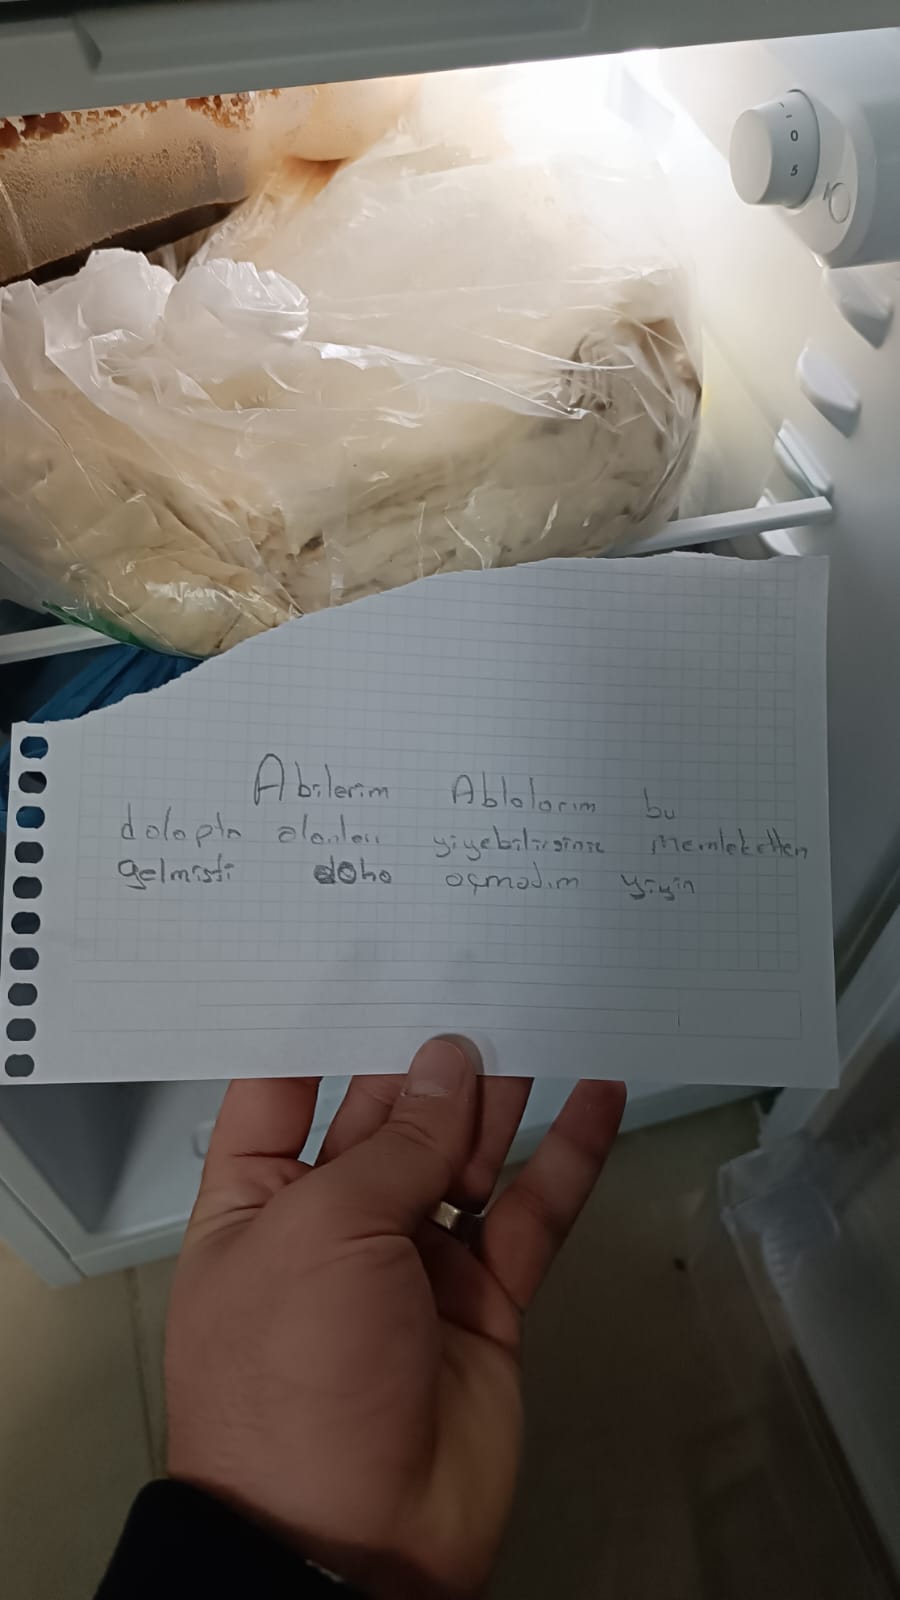 -
0
5
Abilerim Ablalarım bu
dolapta olanları yiyebilirsiniz memleketten
gelmişti daha açmadım yiyin